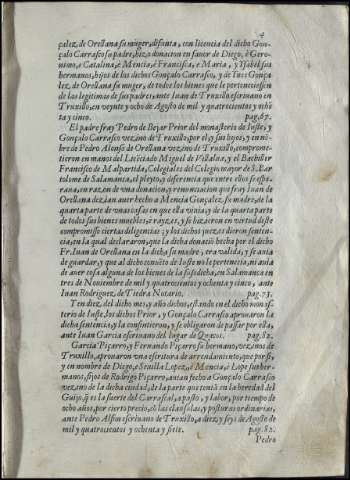 4
çalez, de Orellana su muger, difunta, con licencia del dicho Gon-
çalo Carrasco su padre, hizo donacion en favor de Diego, è Gero-
nimo, e Catalina, è Mencia, è Francisca, e Maria, y Ysabel sus
hermanos, hijos de los dichos Gonçalo Carrasco, y de Ynes Gonça
lez, de Orellana su muger, de todos los bienes que le pertenecieron
de las legitimas de sus padres, ante Iuan de Truxillo escrivano en
Truxillo, en veynte y ocho de Agosto de mil y quatrocientos y ochē
ta y cinco. pag.67.
El padre fray Pedro de Bejar Prior del monasterio de Iuste, y
Gonçalo Carrasco vezino de Truxillo, por el y sus hijos, y en nom-
bre de Pedro Alonso de Orellana vezino de Truxillo, comprome-
tieron en manos del Liceciado Miguel de Villalva, y el Bachiller
Francisco de Malpartida, Colegiales del Colegio mayor de S. Bar
tolome de Salamanca, el pleyto, y diferencia que entre ellos se espe-
rava, en razon de una donacion, y renunciacion que fray Iuan de
Orellana dezian aver hecho a Mencia Gonçalez, su madre, de la
quarta parte de unas casas en que ella vivia, y de la quarta parte
de todos sus bienes muebles, è rayzes, y se hizieron en virtud deste
compromisso ciertas diligencias; y los dichos juezes dieron senten-
cia, en la qual declararon, que la dicha donaciō hecha por el dicho
Fr. Iuan de Orellana en la dicha su madre, era valida, y se avia
de guardar, y que al dicho convēto de Iuste no le pertenecia, ni avia
de aver cosa alguna de los bienes de la susodicha, en Salamanca en
tres de Noviembre de mil y quatrocientos y ochenta y cinco, ante
Iuan Rodriguez, de Tiedra Notario. pag.73.
Y en diez, del dicho mes, y año dichos, estando en el dicho monaste
rio de Iuste, los dichos Prior, y Gonçalo Carrasco aprovaron la
dicha sentencia, y la consintieron, y se obligaron de passar por ella,
ante Iuan Garcia escrivano del lugar de Quacos. pag.82.
Garcia Piçarro, y Fernando Piçarro su hermano, vezinos de
Truxillo, aprovaron una escritura de arrendamiento, que por si,
y en nombre de Diego, e Sevilla Lopez, è Mencia, è Lope sus her-
manos, hijos de Rodrigo Piçarro, avian fecho a Gonçalo Carrasco
vezino de la dicha ciudad, de la parte que tenian en la heredad del
Guijo, q̃ es la suerte del Carrascal, a pasto, y labor, por tiempo de
ocho años, por cierto precio, cō las clausulas, y posturas ordinarias,
ante Pedro Alfon escrivano de Truxillo, a diez y seys de Agosto de
mil y quatrocientos y ochenta y siete. pag.82.
Pedro